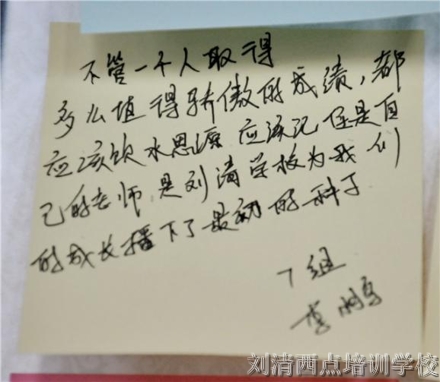 不管一个人取得
多么值得骄傲的成绩，都
应该饮水思源 应该记住是自
己的老师，是刘清学校为我们
的成长播下了最初的种子
7组
李鹏
刘清西点培训学校